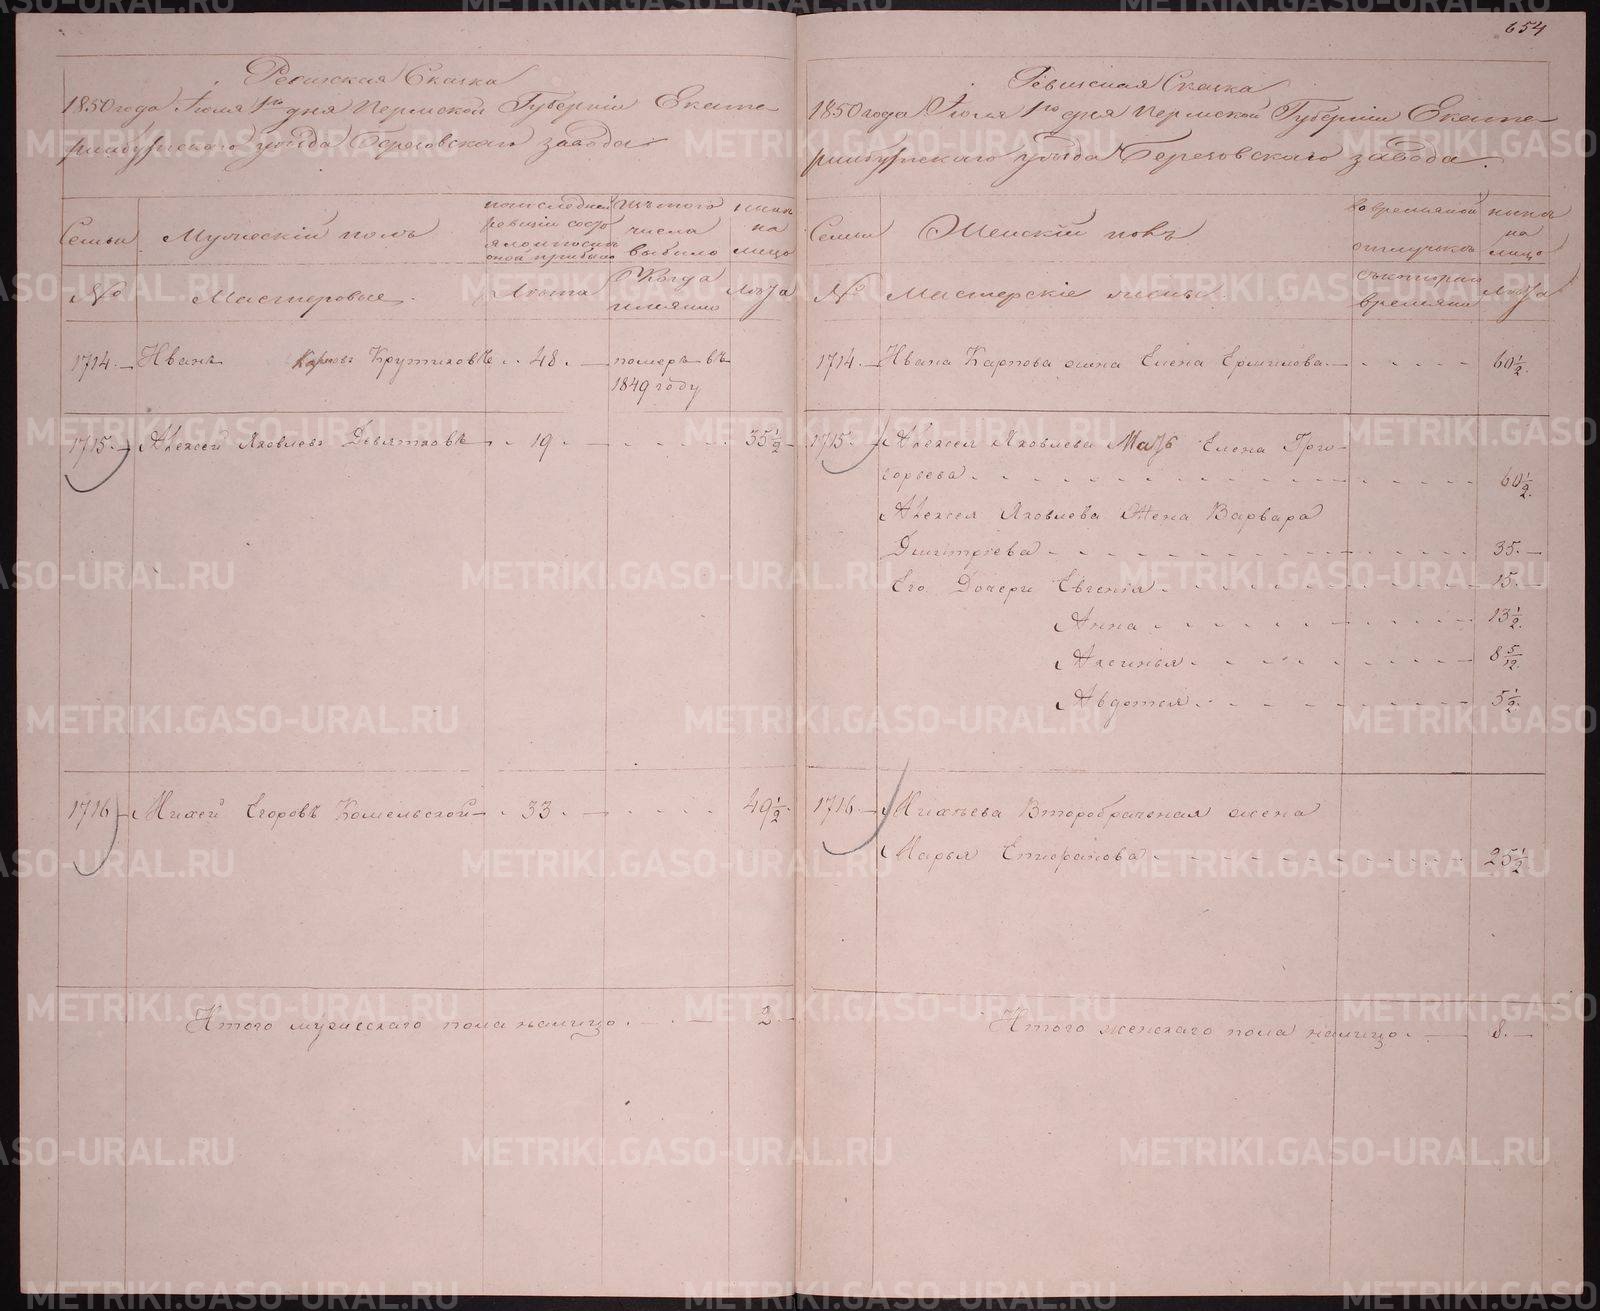 654
Ревижская Сказка
1850 года Іюля 1го дня Пермской Губерніи Екате-
ринбургскаго уѣзда Березовскаго завода
Семьи
Мужескій полъ
по последней ревизіи состояло и после оной прибыло
изъ того числа выбыло
нынѣ на лицо
№
Мастеровые.
Лѣта
Когда именно
Лѣта
1714. Иванъ Карповъ Крутиковъ 48. померъ въ
1849 году
1715. Алексей Яковлевъ Девятковъ 19. 35 1/2
1716 Михей Егоровъ Комельской 33. 49 1/2
Итого мужескаго пола налицо. 2.
Ревизская Сказка
1850 года Іюля 1го дня Пермской Губерніи Екате-
ринбургскаго уѣзда Березовскаго завода.
Семьи
Женскій полъ
во временной отлучькѣ
нынѣ на лицо
№
Мастерскіе жены
съ которои времяни
Лѣта
1714. Ивана Карпова жина Елена Ермилова 60 1/2.
1715. Алексея Яковлева Мать Елена Гри-
горьева 60 1/2.
Алексея Яковлева Жена Варвара
Дмитріева 35.
Его Дочери Евгенія 15.
Анна 13 1/2.
Аксинья 8 5/12.
Авдотея 5 1/2.
1716. Михѣева Второбрачная жена
Марья Епифанова 25 1/2
Итого женскаго пола налицо. 8.
METRIKI.GASO-URAL.RU